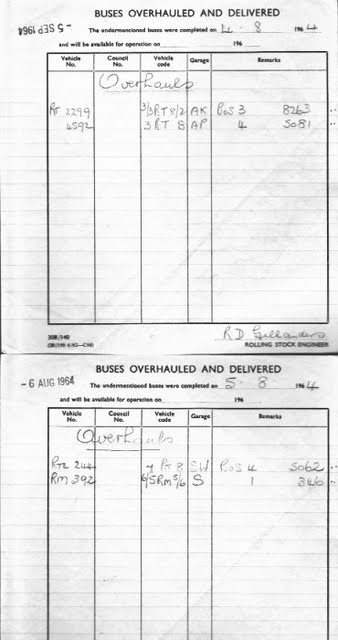 BUSES OVERHAULED AND DELIVERED
- 5 SEP 1964
The undermentioned buses were completed on 4 - 8 196 4
and will be available for operation on 196
Vehicle No. Council No. Vehicle code Garage Remarks
Overhauls
RT 2299 3/3RT8/2 AK Bos 3 8263
4592 3 RT 8 AP 4 5081
30B/140
R D Gillanders
ROLLING STOCK ENGINEER
BUSES OVERHAULED AND DELIVERED
- 6 AUG 1964
The undermentioned buses were completed on 5 - 8 196 4
and will be available for operation on 196
Vehicle No. Council No. Vehicle code Garage Remarks
Overhauls
RTL 244 7 RT 8 SW Bos 4 5062
RM 392 6/5RM5/6 S 1 346